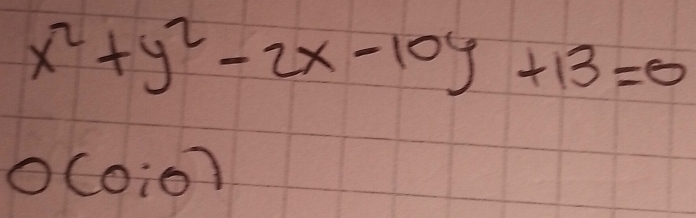 x² + y² - 2x - 10y + 13 = 0
O(0;0)